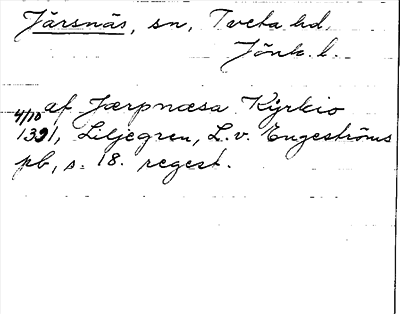 Järsnäs, sn, Tveta hd,
Jönk. l.
af Jærpnæsa Kyrkio
4/10 1391, Liljegren, L. v. Engeströms
pb, s. 18. regest.